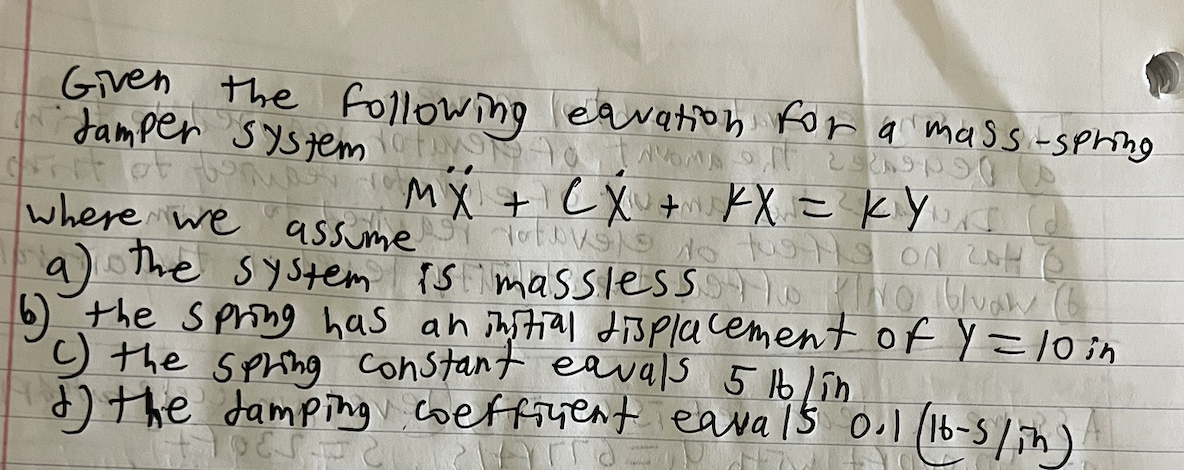 Given the following equation for a mass-spring
damper system
MẌ + CẊ + KX = KY
where we assume
a) the system is massless
b) the spring has an initial displacement of Y = 10 in
c) the spring constant equals 5 lb/in
d) the damping coefficient equals 0.1 (lb-s/in)